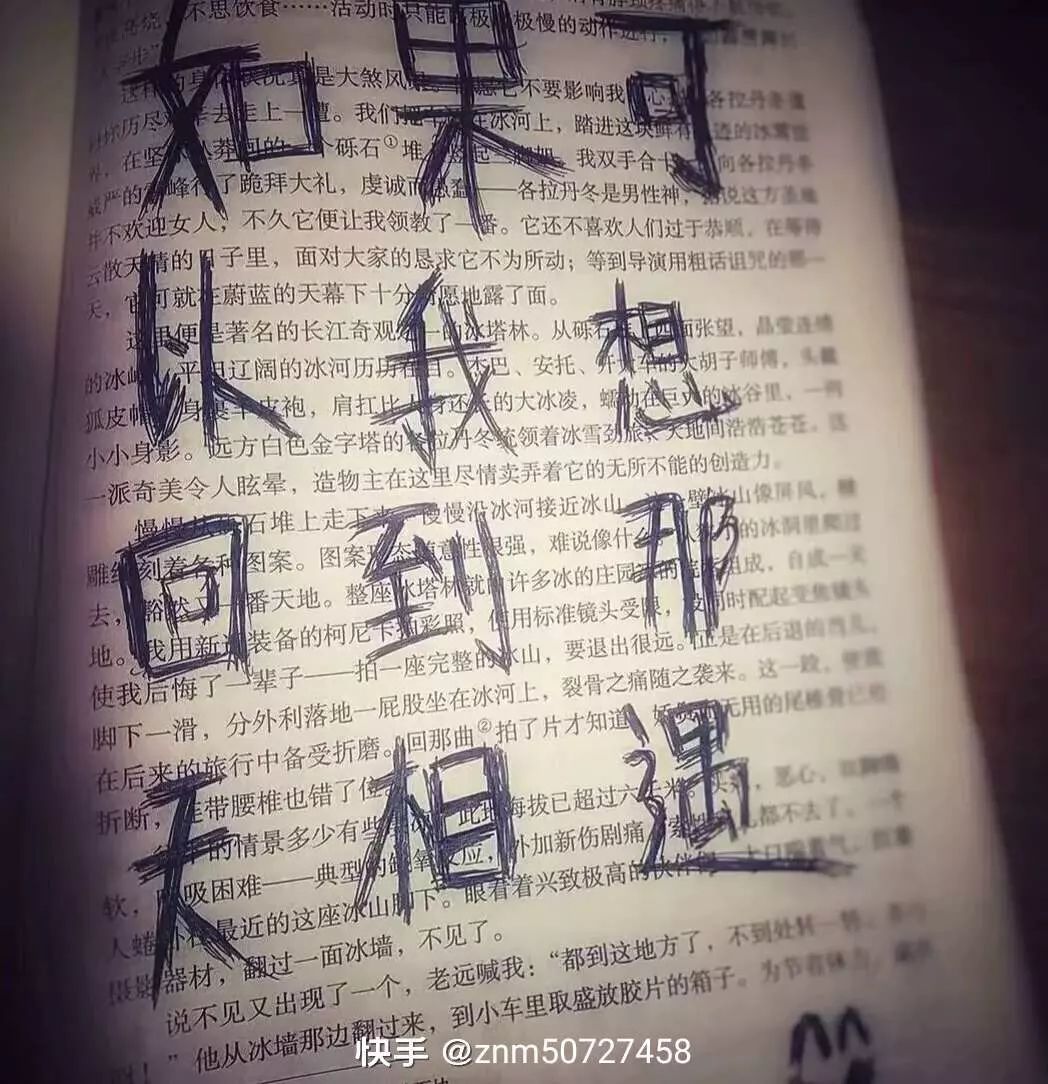 如果可
以我想
回到那
天相遇
不思饮食……活动时只能
极慢的动作进行，
是大煞风
不要影响我
各拉丹冬
上一遭。我们
在冰河上，踏进这块鲜有
迹的冰雪世
界，在坚
砾石①堆
我双手合十
向各拉丹冬
威严的雪峰行了跪拜大礼，虔诚而愚蠢——各拉丹冬是男性神，据说这方圣地
并不欢迎女人，不久它便让我领教了一番。它还不喜欢人们过于恭顺，在等待
云散天晴的日子里，面对大家的恳求它不为所动；等到导演用粗话诅咒的那一
天，它可就在蔚蓝的天幕下十分情愿地露了面。
这里便是著名的长江奇观之一的冰塔林。从砾石堆上四面张望，晶莹连绵
的冰峰、平坦辽阔的冰河历历在目。杰巴、安托、开大车的大胡子师傅，头戴
狐皮帽，身裹羊皮袍，肩扛比人身还长的大冰凌，蠕动在巨大的冰谷里，一列
小小身影。远方白色金字塔的各拉丹冬统领着冰雪劲旅，天地间浩浩苍苍。这
一派奇美令人眩晕，造物主在这里尽情卖弄着它的无所不能的创造力。
慢慢从砾石堆上走下来，慢慢沿冰河接近冰山。这一壁冰山像屏风，雕
雕纹刻着各种图案。图案形态随意性很强，难说像什么。从狭小的冰洞里爬过
去，豁然又一番天地。整座冰塔林就由许多冰的庄园冰的院落组成，自成一天
地。我用新近装备的柯尼卡拍彩照，使用标准镜头受限，没同时配起变焦镜头
使我后悔了一辈子——拍一座完整的冰山，要退出很远。正是在后退的当儿，
脚下一滑，分外利落地一屁股坐在冰河上，裂骨之痛随之袭来。这一跤，使我
在后来的旅行中备受折磨。回那曲②拍了片才知道，娇贵而无用的尾椎骨已经
折断，连带腰椎也错了位
的情景多少有些
此地海拔已超过六千米，头痛，恶心，双脚绵
软，呼吸困难——典型的缺氧反应，外加新伤剧痛，索性哪儿都不去了。一个
人蜷卧在最近的这座冰山脚下。眼看着兴致极高的伙伴们，大口喘着气，扛着
摄影器材，翻过一面冰墙，不见了。
说不见又出现了一个，老远喊我：“都到这地方了，不到处转一转，
”他从冰墙那边翻过来，到小车里取盛放胶片的箱子。为节省体力，
快手 @znm50727458